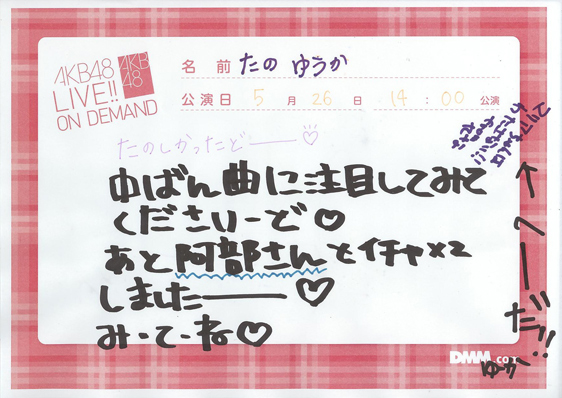 AKB48
LIVE!!
ON DEMAND
AKB
48
名 前 たの ゆうか
公演日 5 月 26 日 14 : 00 公演
たのしかったどー♡
ゆばん曲に注目してみて
くださいーど♡
あと阿部さんとイチャ××2
しました――♡
み・て・ね♡
↑
へーだっ!!
ゆうか
DMM.com